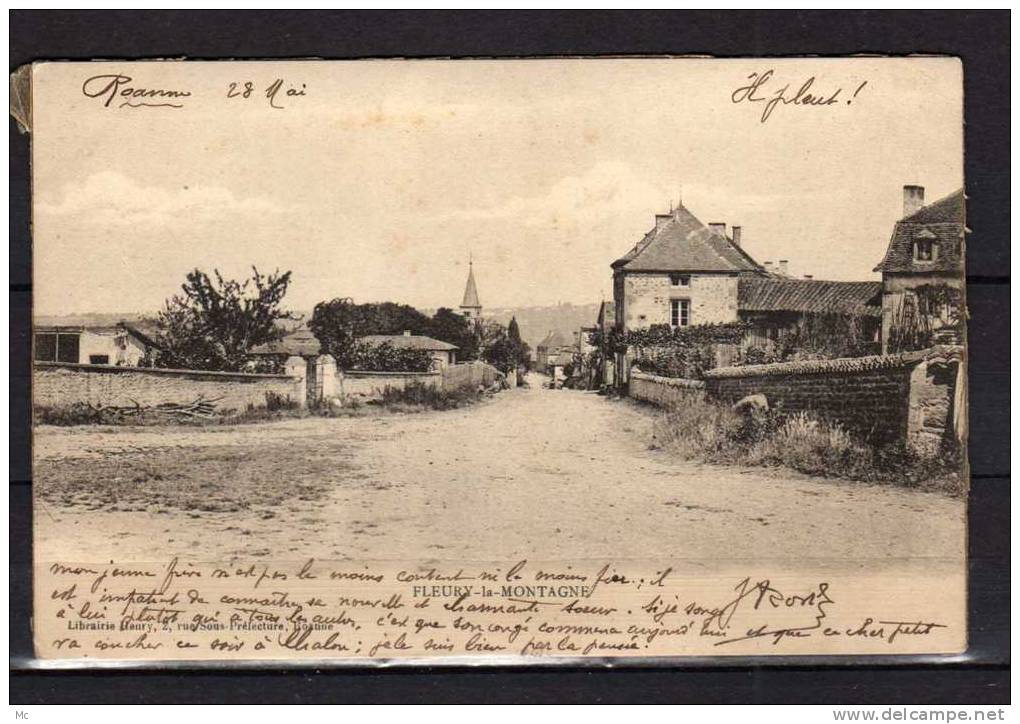 Roanne 28 Mai
Il pleut !
mon jeune frère n'est pas le moins content ni le moins fier ; il
FLEURY-la-MONTAGNE
est impatient de connaître sa nouvelle et charmante soeur. Si je songe
à lui plutôt qu'à tous les autres, c'est que son congé commence aujourd'hui et que ce cher petit
Librairie Henry, 2, rue Sous-Préfecture, Roanne
va coucher ce soir à Chalon ; je le suis bien par la pensée !
Mc
©delcampe.net